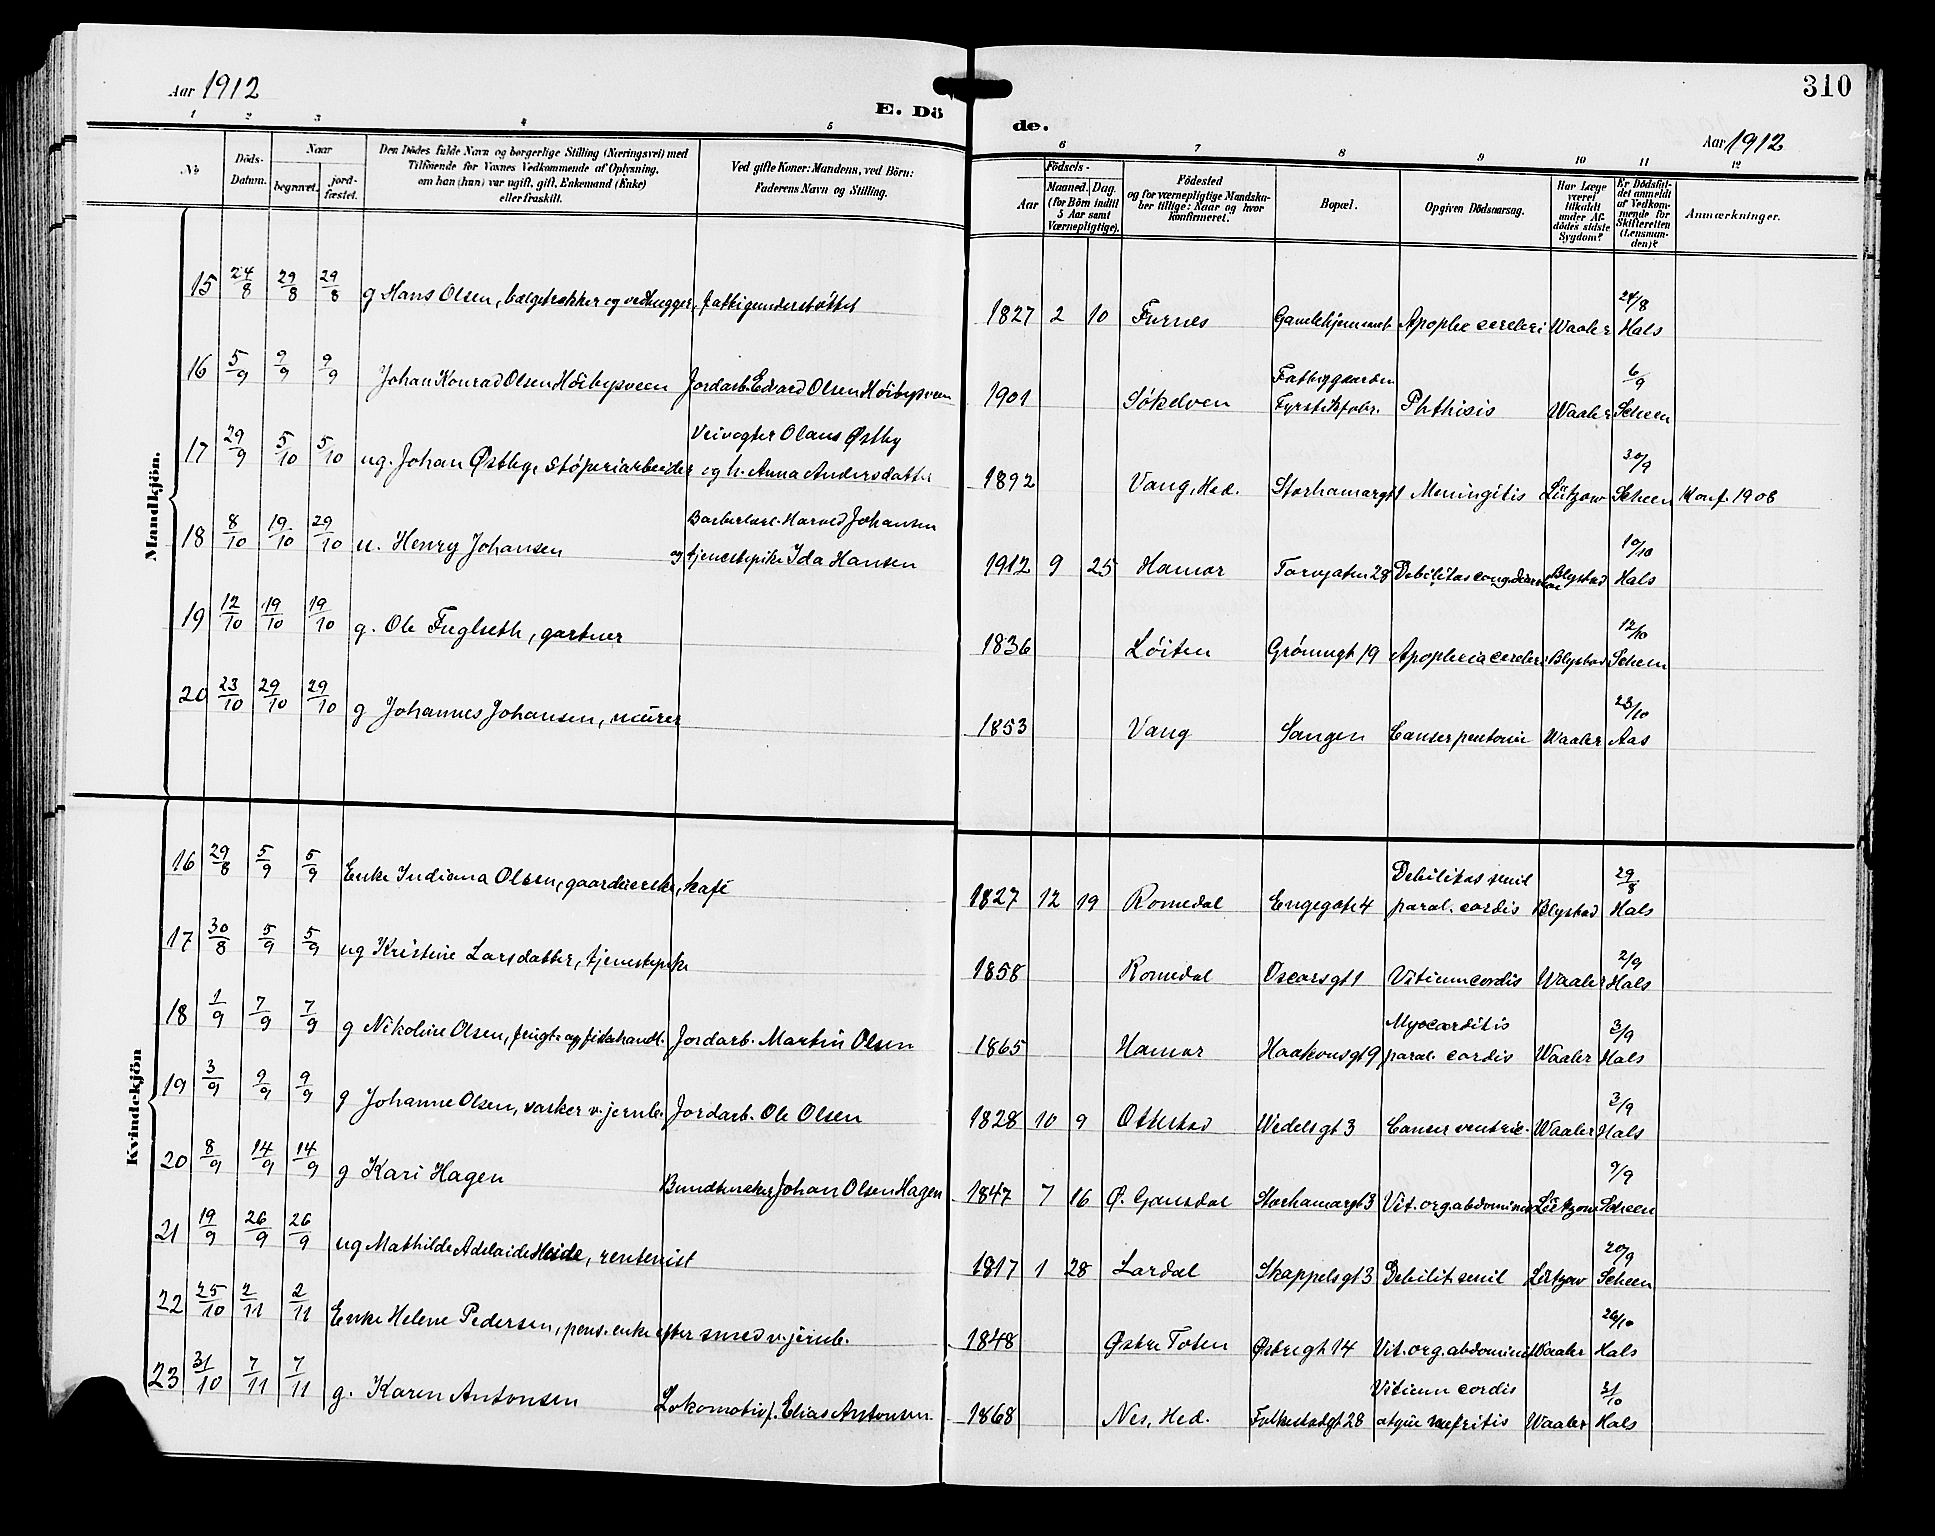 Aar 1912
E. Dö
de.
310
Aar 1912
1 2 3 4 5
6 7 8 9 10 11 12
No
Döds-Datum.
Naar
begravet.
jord-fæstet.
Den Dödes fulde Navn og borgerlige Stilling (Næringsvei) med
Tilföiende for Voxnes Vedkommende af Oplysning,
om han (hun) var ugift, gift, Enkemand (Enke)
eller fraskilt.
Ved gifte Koner: Mandens, ved Börn:
Faderens Navn og Stilling.
Födsels-
Aar
Maaned. Dag.
(for Börn indtil
5 Aar samt
Værnepligtige).
Födested
og for værnepligtige Mandska-
ber tillige: Naar og hvor
konfirmeret.
Bopæl.
Opgiven Dödsaarsag.
Har Læge
været
tilkaldt
under Af-
dödes sidste
Sygdom?
Er Dödsfal-
det anmeldt
af Vedkom-
mende for
Skifteretten
(Lensman-
den)?
Anmærkninger.
Mandkjön.
15 24/8 29/8 29/8 g Hans Olsen, bælgetrækker og vedhugger, fattigunderstøttet
1827 2 10 Furnes Gamlehjemmet Apoplex cerebri Waaler 24/8 Hals
16 5/9 9/9 9/9 Johan Konrad Olsen Höibysveen Jordarb. Edvard Olsen Höibysveen
1901 Sökelven Fattiggaarden Fyrstikfabr. Phthisis Waaler 6/9 Scheen
17 29/9 5/10 5/10 ug. Johan Østby, Støperiarbeider Veivogter Olaus Østby
og h. Anna Andersdatter
1892 Vang, Hed. Storhamargt 1 Meningitis Lützow 30/9 Scheen Konf. 1906
18 8/10 19/10 29/10 u. Henry Johansen Harald Johansen
og tjenestepike Ida Hansen
1912 9 25 Hamar Torvgaten 28 Debilitas cong. Blystad 10/10 Hals
19 12/10 19/10 19/10 g. Ole Fuglseth, gartner
1836 Löiten Grönnegt 19 Apoplexia cerebri Blystad 12/10 Scheen
20 23/10 29/10 29/10 g Johannes Johansen, murer
1853 Vang Sangen Cancer peritonei Waaler 23/10 Aas
Kvindekjön
16 29/8 5/9 5/9 Enke Indiana Olsen, gaardeierske, kafé
1827 12 19 Romedal Engegate 4 Debilitas senil
paral. cordis Blystad 29/8 Hals
17 30/8 5/9 5/9 ug Kristine Larsdatter, tjenestepike
1858 Romedal Oscarsgt 1 Vitium cordis Waaler 2/9 Hals
18 1/9 7/9 7/9 g Nikoline Olsen, frugt- og fiskehandl. Jordarb. Martin Olsen
1865 Hamar Haakonsgt 9 Myocarditis
paral. cordis Waaler 3/9 Hals
19 3/9 9/9 9/9 g Johanne Olsen, vasker v. jernb. Jordarb. Ole Olsen
1828 10 9 Ottestad Wedelsgt 3 Cancer ventric. Waaler 3/9 Hals
20 8/9 14/9 14/9 g Kari Hagen Bundtmaker Johan Olsen Hagen
1847 7 16 Ø. Gausdal Storhamargt 3 Vit. org. abdominis Lützow 9/9 Scheen
21 19/9 26/9 26/9 ug Mathilde Adelaide Heide, rentenist
1817 1 28 Lardal Skappelsgt 3 Debilit. senil Lützow 20/9 Scheen
22 25/10 2/11 2/11 Enke Helene Pedersen, pens. enke efter smed v. jernb.
1848 Østre Toten Østregt 14 Vit. org. abdominis Waaler 26/10 Hals
23 31/10 7/11 7/11 g. Karen Antonsen Lokomotivf. Elias Antonsen
1868 Nes, Hed. Falkestadgt 28 Vitium cordis
nefritis Waaler 31/10 Hals